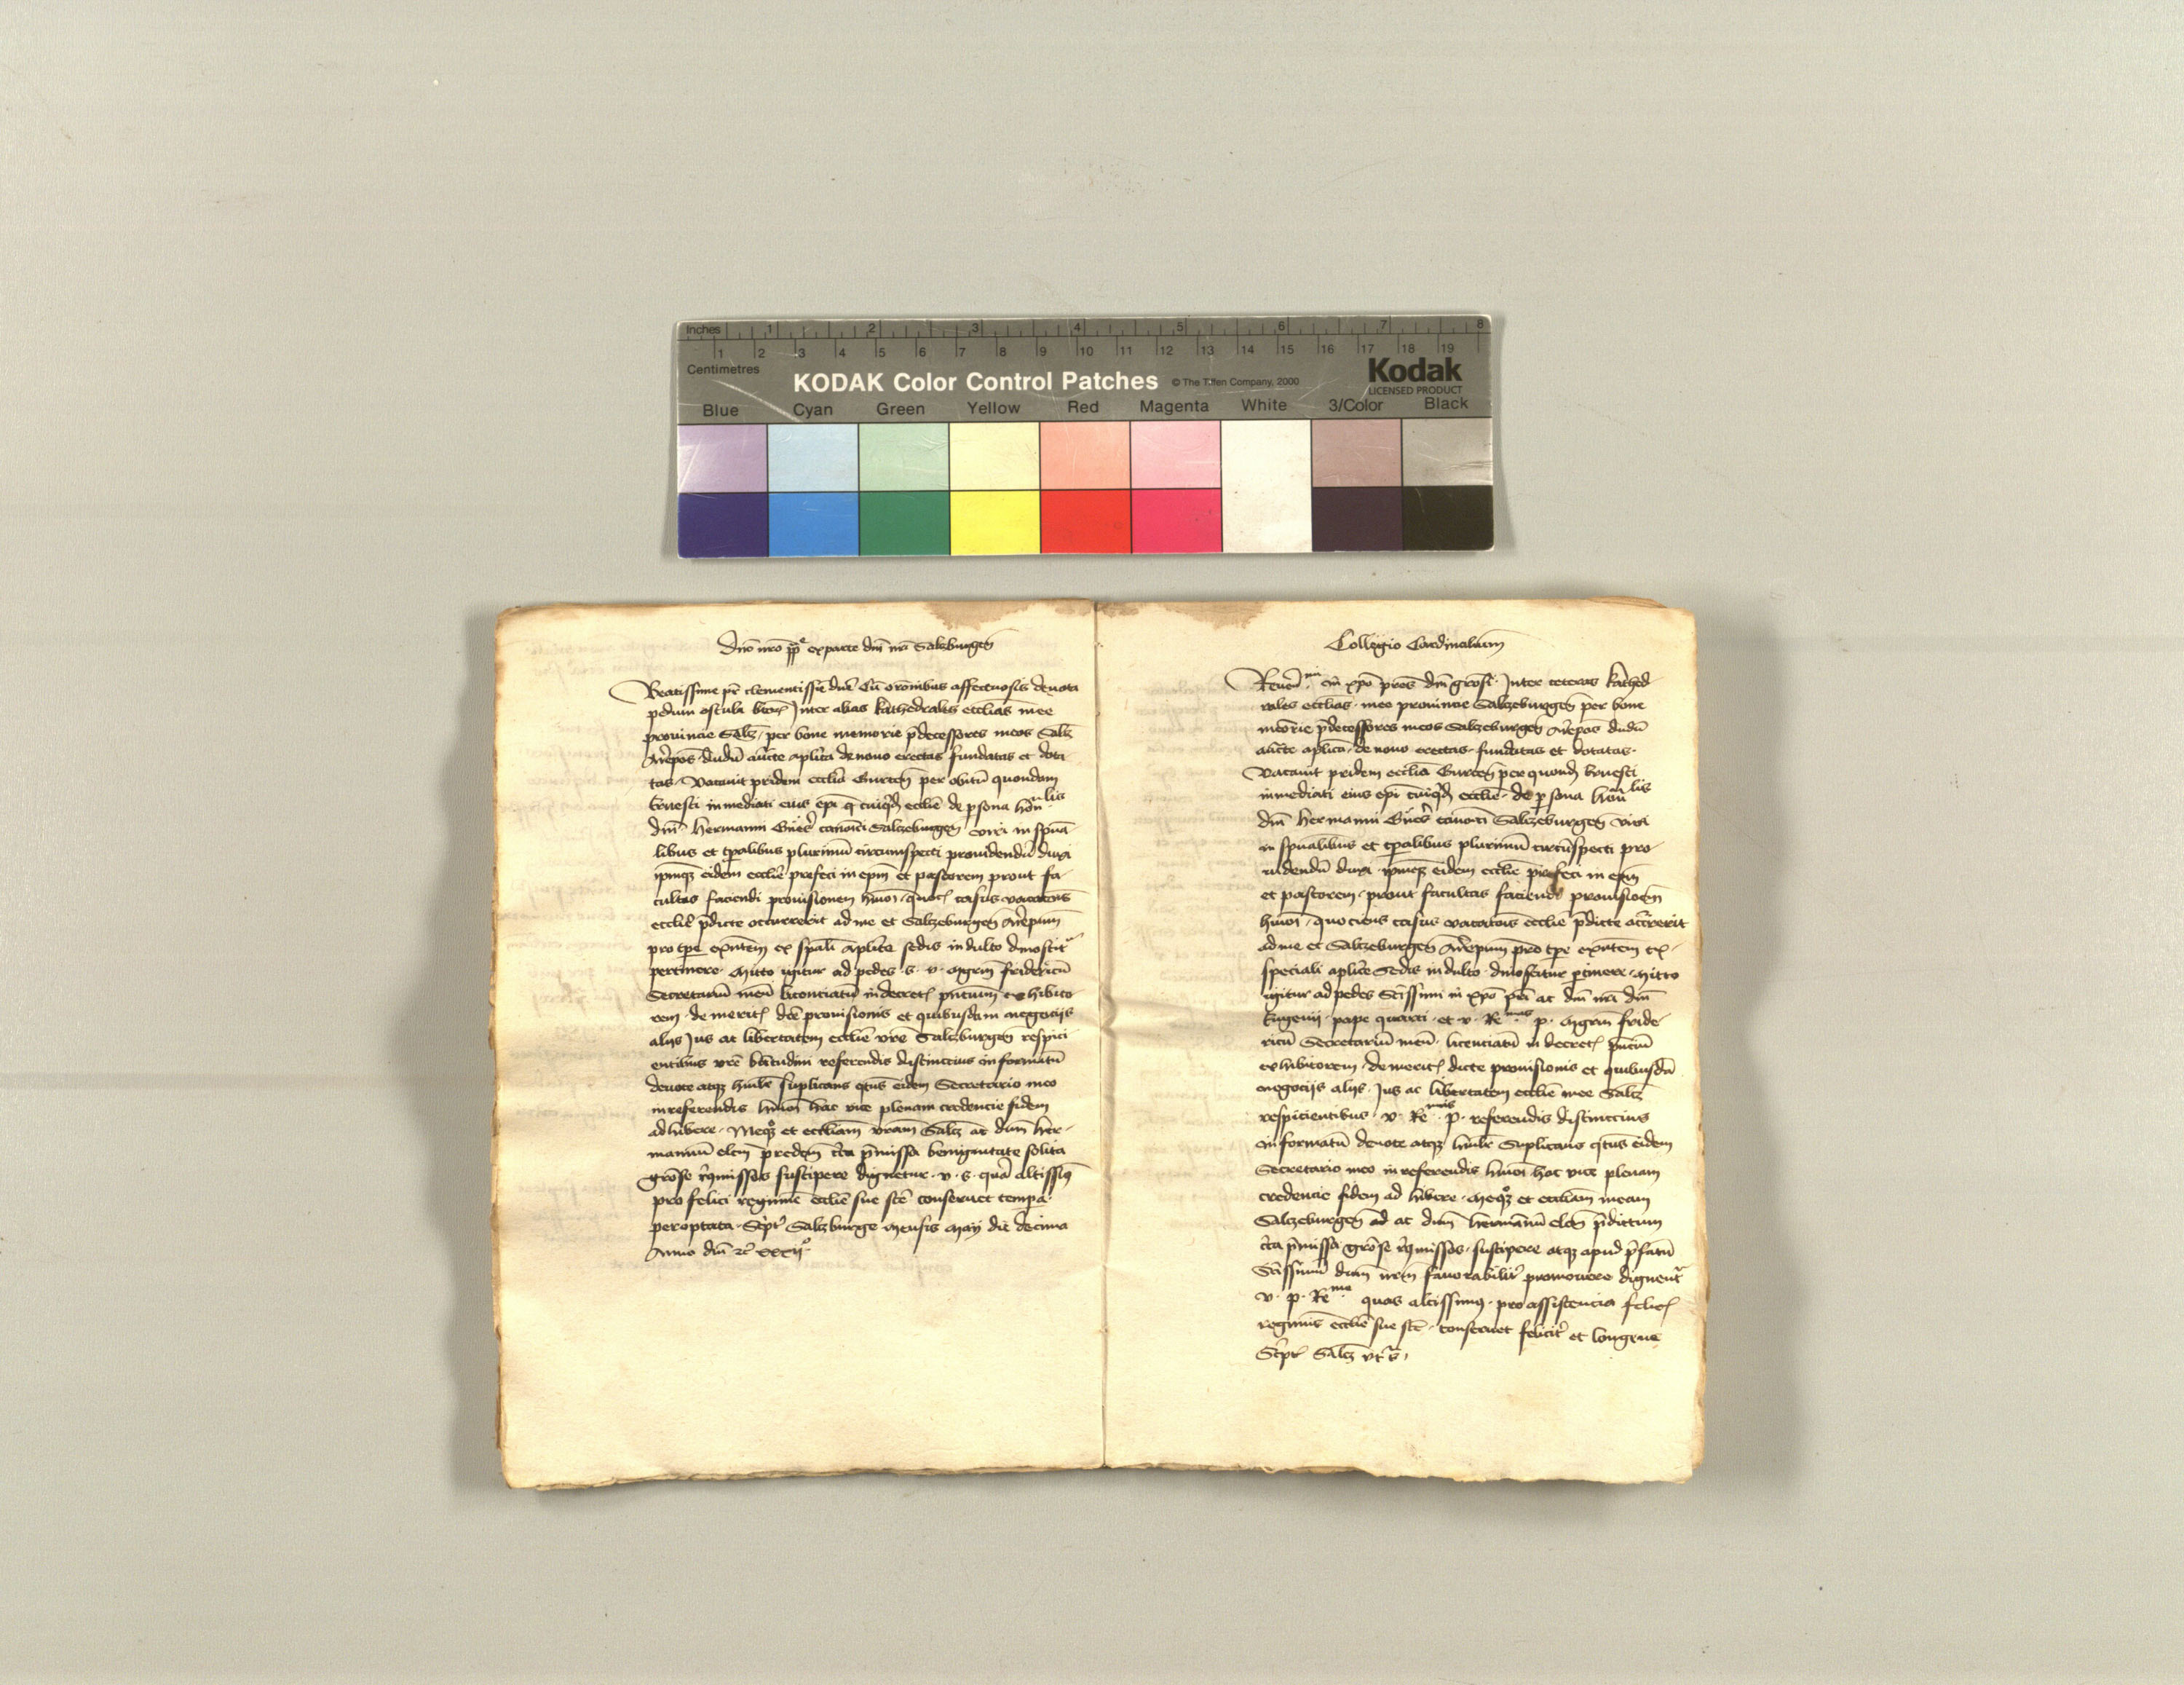 Inches 1 2 3 4 5 6 7 8
1 2 3 4 5 6 7 8 9 10 11 12 13 14 15 16 17 18 19
Centimetres
KODAK Color Control Patches © The Tiffen Company, 2000 Kodak
LICENSED PRODUCT
Blue Cyan Green Yellow Red Magenta White 3/Color Black
Dno nro pp exparte dni nri Salzburgen
Beatissime pr clementissime dne Cu oronibus affectuosis devota
pedum oscula btorum Inter alias kathedrales ecclias mee
provincie Salz / per bone memorie pdecessores meos Salz
Arepos dudu aucte aplica de novo erectas fundatas et dota
tas / Vacavit pridem ecclia Gurcen per obitu quondam
Ernesti inmediati eius epi q cuiqd ecclie de psona hon lis
dni hermanni canonici Salczeburgen viri in spua
libus et tpalibus plurimu circumspecti providendu duxi
ipmqz eidem ecclie prefeci in epm et pastorem prout fa
cultas faciendi provisionem hmoi quoc casus vacacois
ecclie pdicte occurrerit ad me et Salczeburgen Arepum
pro tpe exntem ex spali aplice sedis indulto dinoscit
pertinere Mitto igitur ad pedes s v Mgrm fridericu
Secretariu meu licenciatu in decret pntium exhibito
rem de merit dce provisionis et quibusdam negociis
aliis Jus ac libertatem ecclie vre Salczburgen respici
entibus vre btitudini referendis distinccius informatu
devote atqz humilr suplicans qtus eidem Secretario meo
in referendis hmoi hac vice plenam credencie fidem
adhibere Meqz et eccliam vram Salcz ac dnm her
mannu elcm predcm cca pmissa benignitate solita
grose suscipere dignetur v s qua altissimus
pro felici regimine ecclie sue sce conservet tempa
peroptata Script Salzburge Mensis Maij die decima
Anno dni rc xxxij
Collegio Cardinalium
Reven mi in xpo pres dni grosi Inter ceteras kathed
rales ecclias mee provincie Salczeburgen per bone
meorie pdecessores meos Salczeburgen Arepos dudu
aucte aplica de novo erectas fundatas et dotatas
Vacavit pridem ecclia Gurcen per quond Ernesti
inmediati eius epi cuiqd ecclie de psona hon lis
dni hermanni canonici Salczeburgen viri
in spualibus et tpalibus plurimu circuspecti pro
videndu duxi ipmqz eidem ecclie prefeci in epm
et pastorem prout facultas faciendi provisioem
hmoi quociens casus vacacois ecclie pdicte accrerit
ad me et Salczeburgen Arepum pro tpe exntem ex
speciali aplice Sedis indulto dinoscitur ptinere Mitto
igitur ad pedes Scissimi in xpo pris ac dni nri dni
Eugenij pape quarti et v Re mas p Mgrm fride
ricu Secretariu meu licenciatu in decret pntiu
exhibitorem de merit dicte provisionis et quibusda
negociis aliis Jus ac libertatem ecclie mee Salcz
respicientibus v Re mis p referendis distinccius
informatu devote atqz humilr Suplicans qtus eidem
Secretario meo in referendis hmoi hac vice plenam
credencie fidem adhibere Meqz et eccliam meam
Salczeburgen ad ac dnm hermannu elcm pdictum
cca pmissa grose suscipere atqz apud pfatu
Scissimu dnm nrm favorabiliter promovere dignent
v p Re mas quas altissimus pro assistencia felic
regiminis ecclie sue sce conservet felicit et longeve
Script Salcz ut s